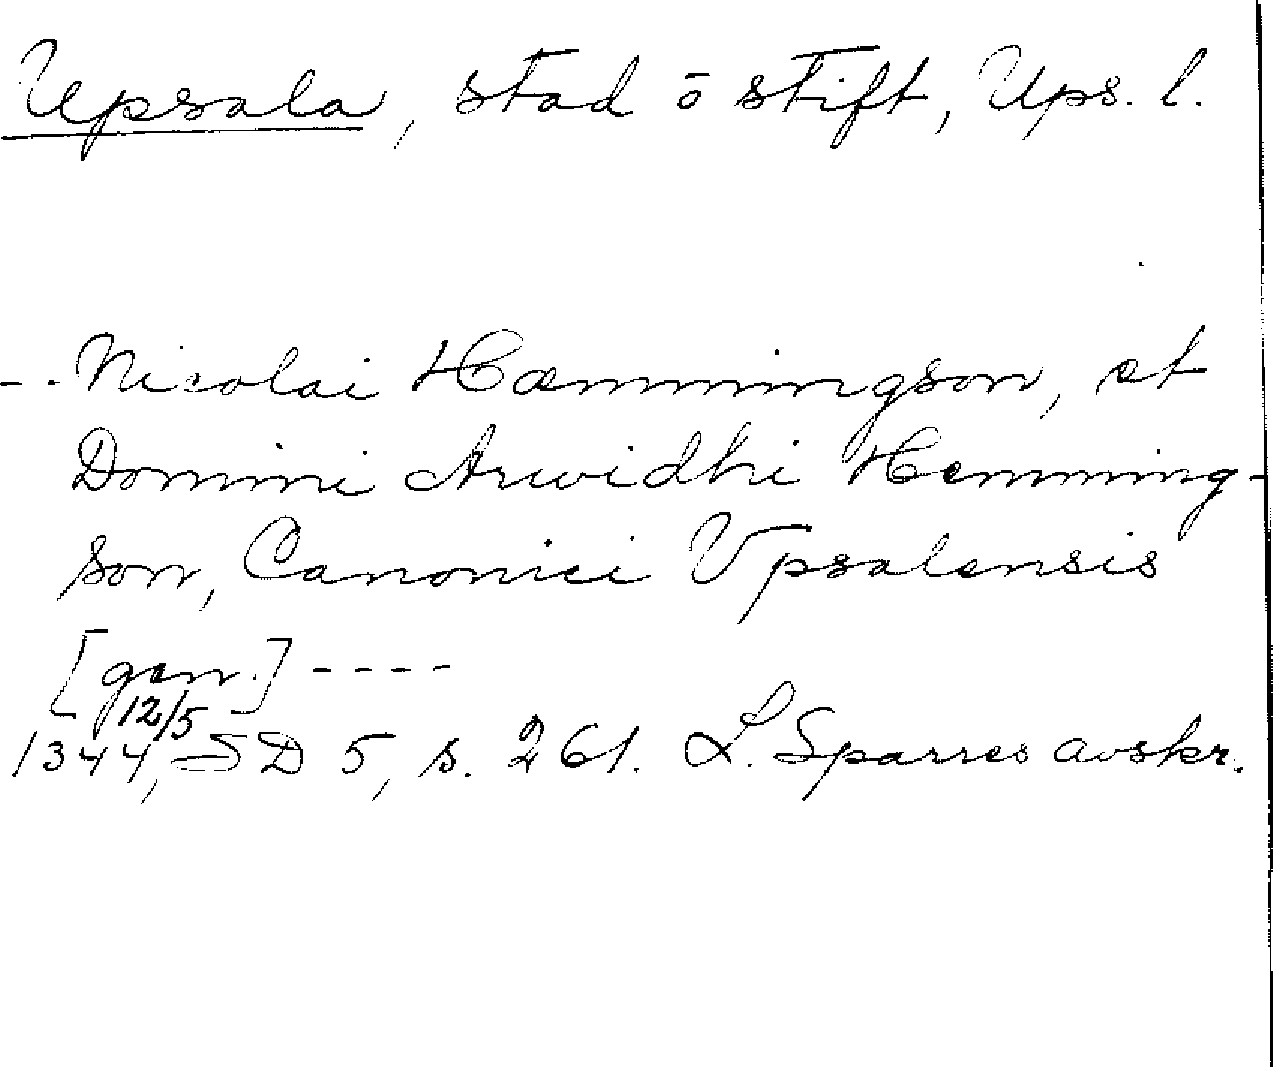 Upsala, stad o stift, Ups. l.
-- Nicolai Hæmmingson, et
Domini Arwidhi Hemming-
son, Canonici Vpsalensis
[gen.] ----
12/5
1344, SD 5, s. 261. L. Sparres avskr.